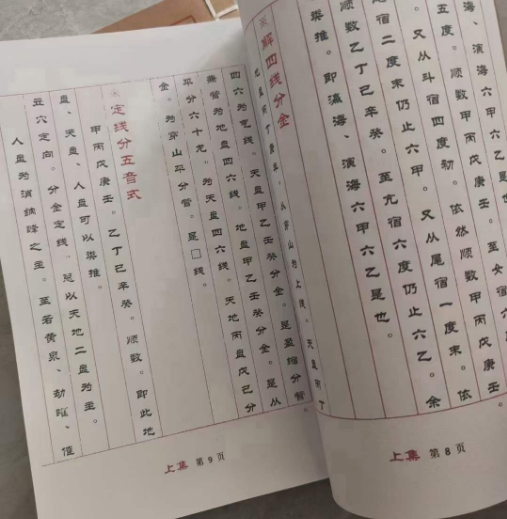 又从斗宿四度初。依然顺数甲丙戊庚壬。
宿二度末仍止六甲。又从尾宿一度末。依
顺数乙丁己辛癸。至亢宿六度仍止六乙。余
类推。即瀛海、滨海六甲六乙是也。
※解四线分金
四六为气线。天盘甲乙壬癸分金。是盈缩分管。
兼管为地盘四六线。地盘甲乙壬癸分金。是从
平分六十龙。为天盘四六线。天地两盘戊己分
金。为穿山平分管。是□线。
※定线分五音式
甲丙戊庚壬。乙丁己辛癸。顺数。即此地
盘、天盘、人盘可以类推。
立穴定向。分金定线。总以天地二盘为主。
人盘为消纳峰之主。至若黄泉、劫曜、
上集 第9页
上集 第8页